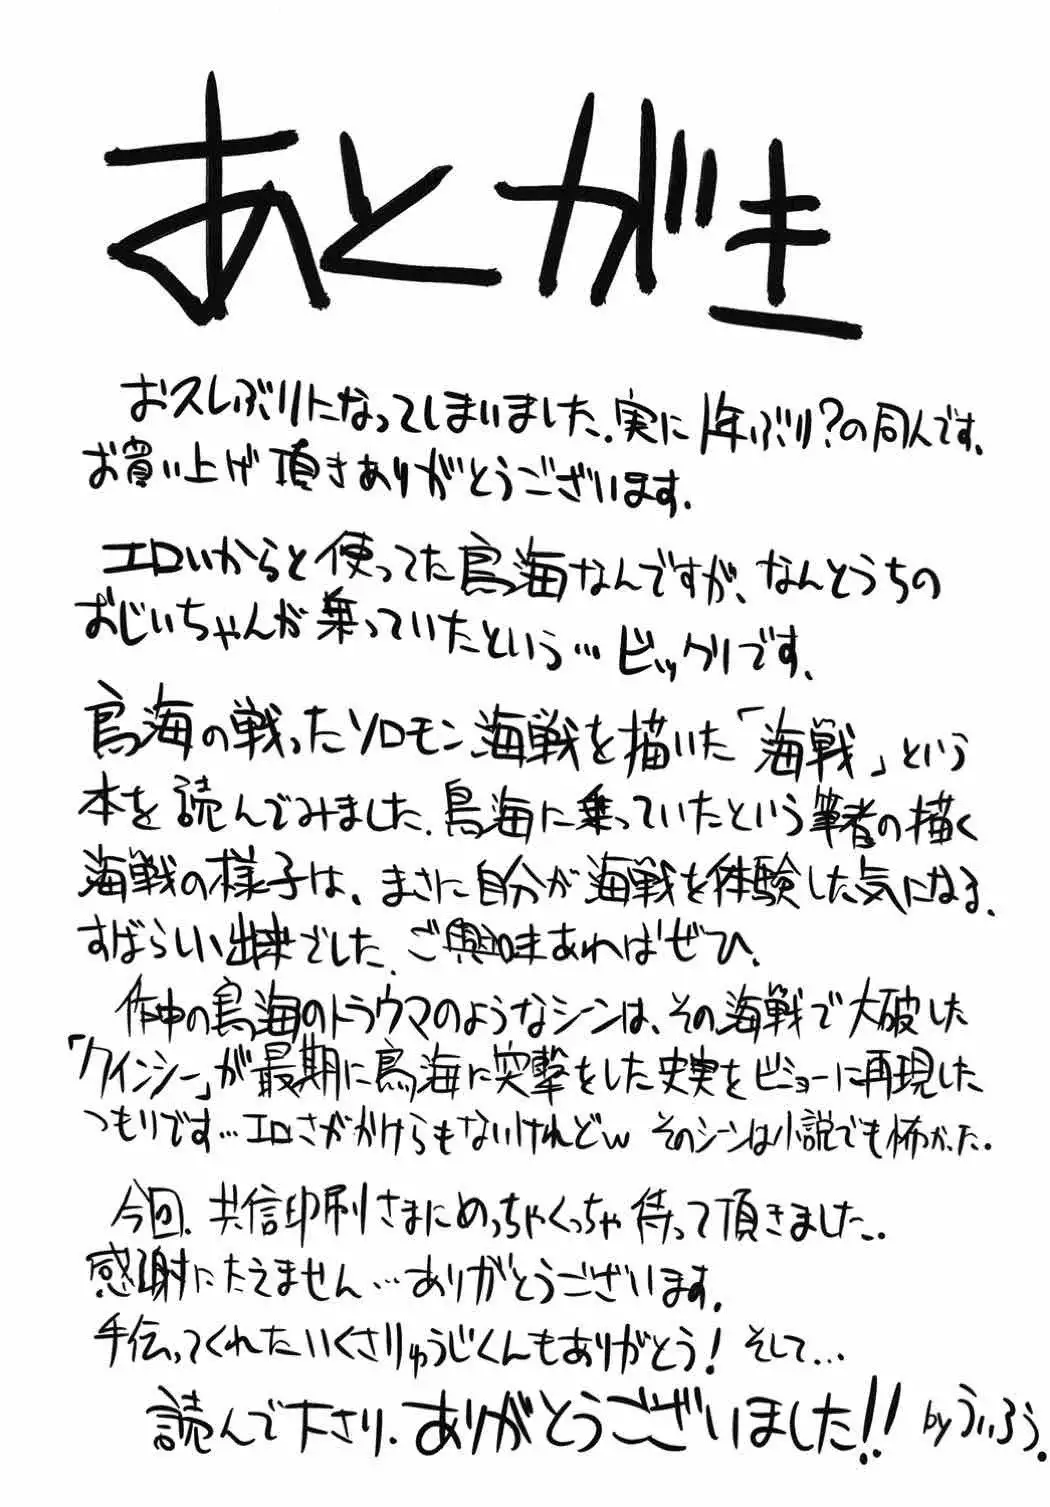 あとがき
お久しぶりになってしまいました.実に1年ぶり?の同人です.
お買い上げ頂きありがとうございます.
エロいからと使ってた鳥海なんですが、なんとうちの
おじいちゃんが乗っていたという…ビックリです.
鳥海の戦ったソロモン海戦を描いた「海戦」という
本を読んでみました.鳥海に乗っていたという筆者の描く
海戦の様子は、まさに自分が海戦を体験した気になる.
すばらしい出来でした.ご興味あればぜひ.
作中の鳥海のトラウマのようなシーンは、その海戦で大破した
「クインシー」が最期に鳥海に突撃をした史実をビミョーに再現した
つもりです…エロさがかけらもないけれどw そのシーンは小説でも怖かった.
今回.共信印刷さまにめっちゃくっちゃ待って頂きました.
感謝にたえません…ありがとうございます.
手伝ってくれたいくさりゅうじくんもありがとう! そして…
読んで下さり.ありがとうございました!! byういろう.